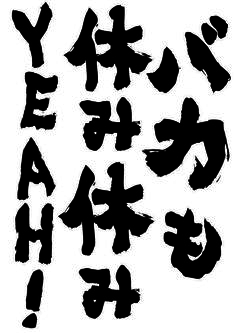 バカも
休み休み
YEAH!